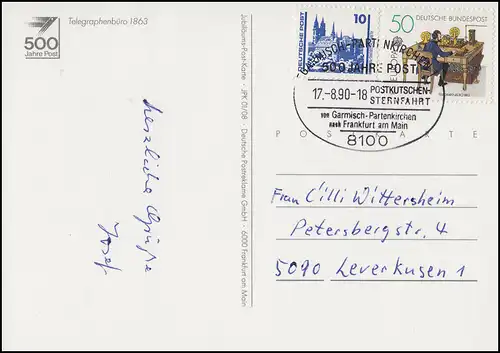 Telegraphenbüro 1863
500
Jahre Post
herzliche Grüße
Josef
Jubiläums-Post-Karte · JPK 01/08 · Deutsche Postreklame GmbH · 6000 Frankfurt am Main
DEUTSCHE POST
10
50 DEUTSCHE BUNDESPOST
GARMISCH-PARTENKIRCHEN
500 JAHRE POST
17.-8.90-18 POSTKUTSCHEN-
STERNFAHRT
von Garmisch-Partenkirchen
nach Frankfurt am Main
8100
POSTKARTE
Frau Cilli Wittersheim
Petersbergstr. 4
5090 Leverkusen 1